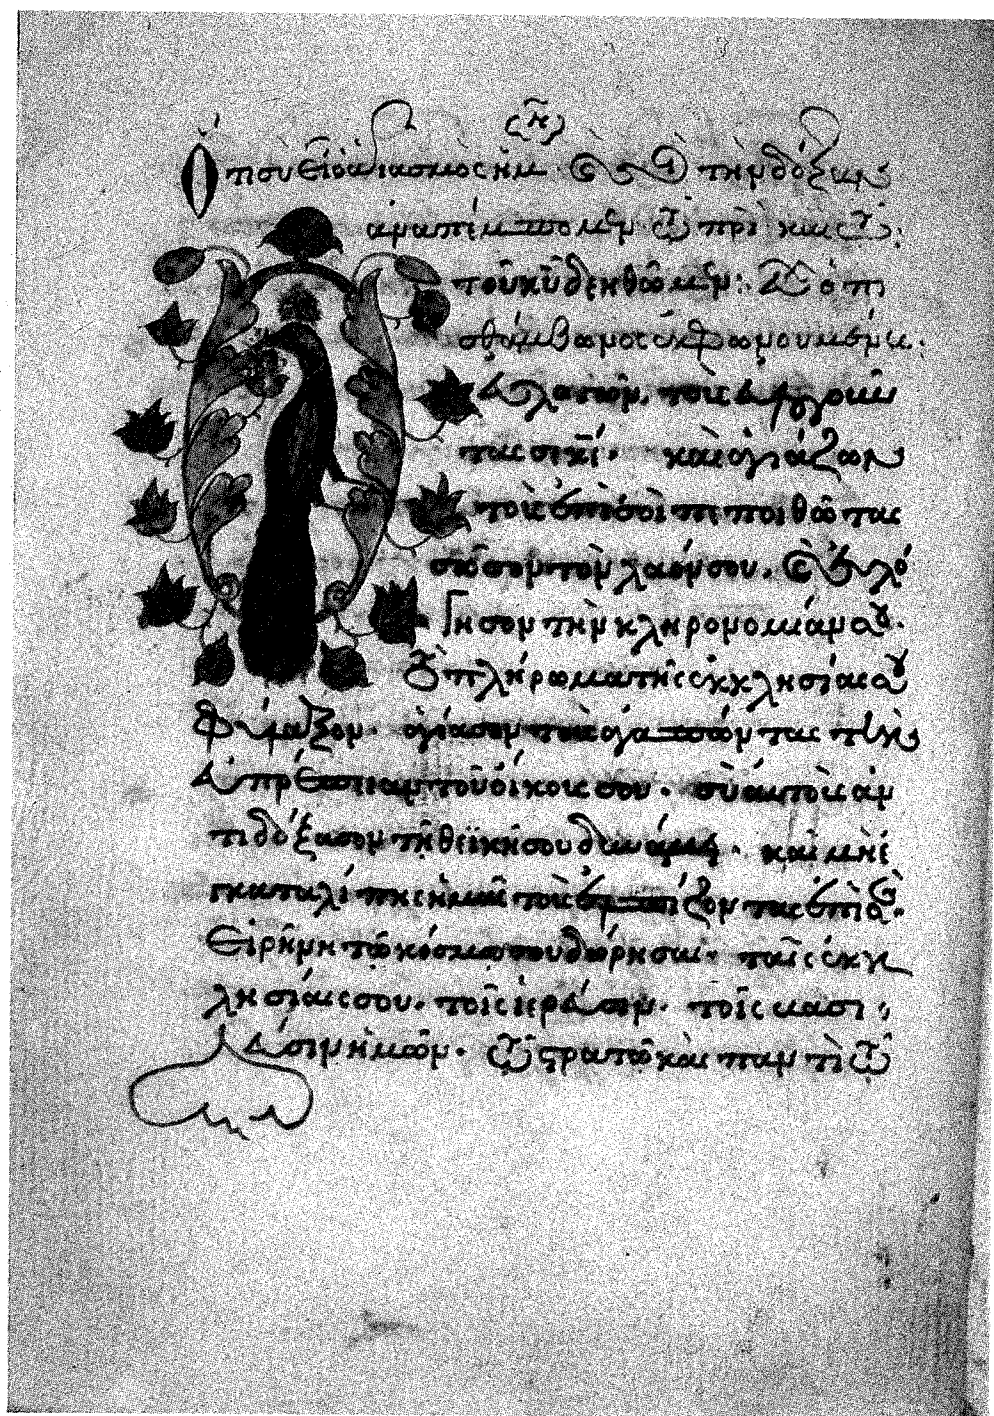 Ὅτι σὺ εἶ ὁ ἁγιασμὸς ἡμ(ῶν) καὶ σοὶ τὴν δόξαν
ἀναπέμπομεν τῷ πατρὶ καὶ τῷ
τοῦ κυρίου δεηθῶμεν
ὀπισθάμβωνος ἐκφωνουμένη
λογῶν τοὺς εὐλογοῦν
τας σε κε. καὶ ἁγιάζων
τοὺς ἐπὶ σοὶ πεποιθότας
σῶσον τὸν λαόν σου. καὶ εὐλό
γησον τὴν κληρονομίαν σου.
τὸ πλήρωμα τῆς ἐκκλησίας σου
φύλαξον. ἁγίασον τοὺς ἀγαπῶντας τὴν
εὐπρέπειαν τοῦ οἴκου σου. σὺ αὐτοὺς ἀν
τιδόξασον τῇ θεϊκῇ σου δυνάμει. καὶ μὴ ἐ
γκαταλίπῃς ἡμᾶς τοὺς ἐλπίζοντας ἐπὶ σέ.
Εἰρήνην τῷ κόσμῳ σου δώρησαι. ταῖς ἐκκ
λησίαις σου. τοῖς ἱερεῦσιν. τοῖς βασι
λεῦσιν ἡμῶν. τῷ στρατῷ καὶ παντὶ τῷ